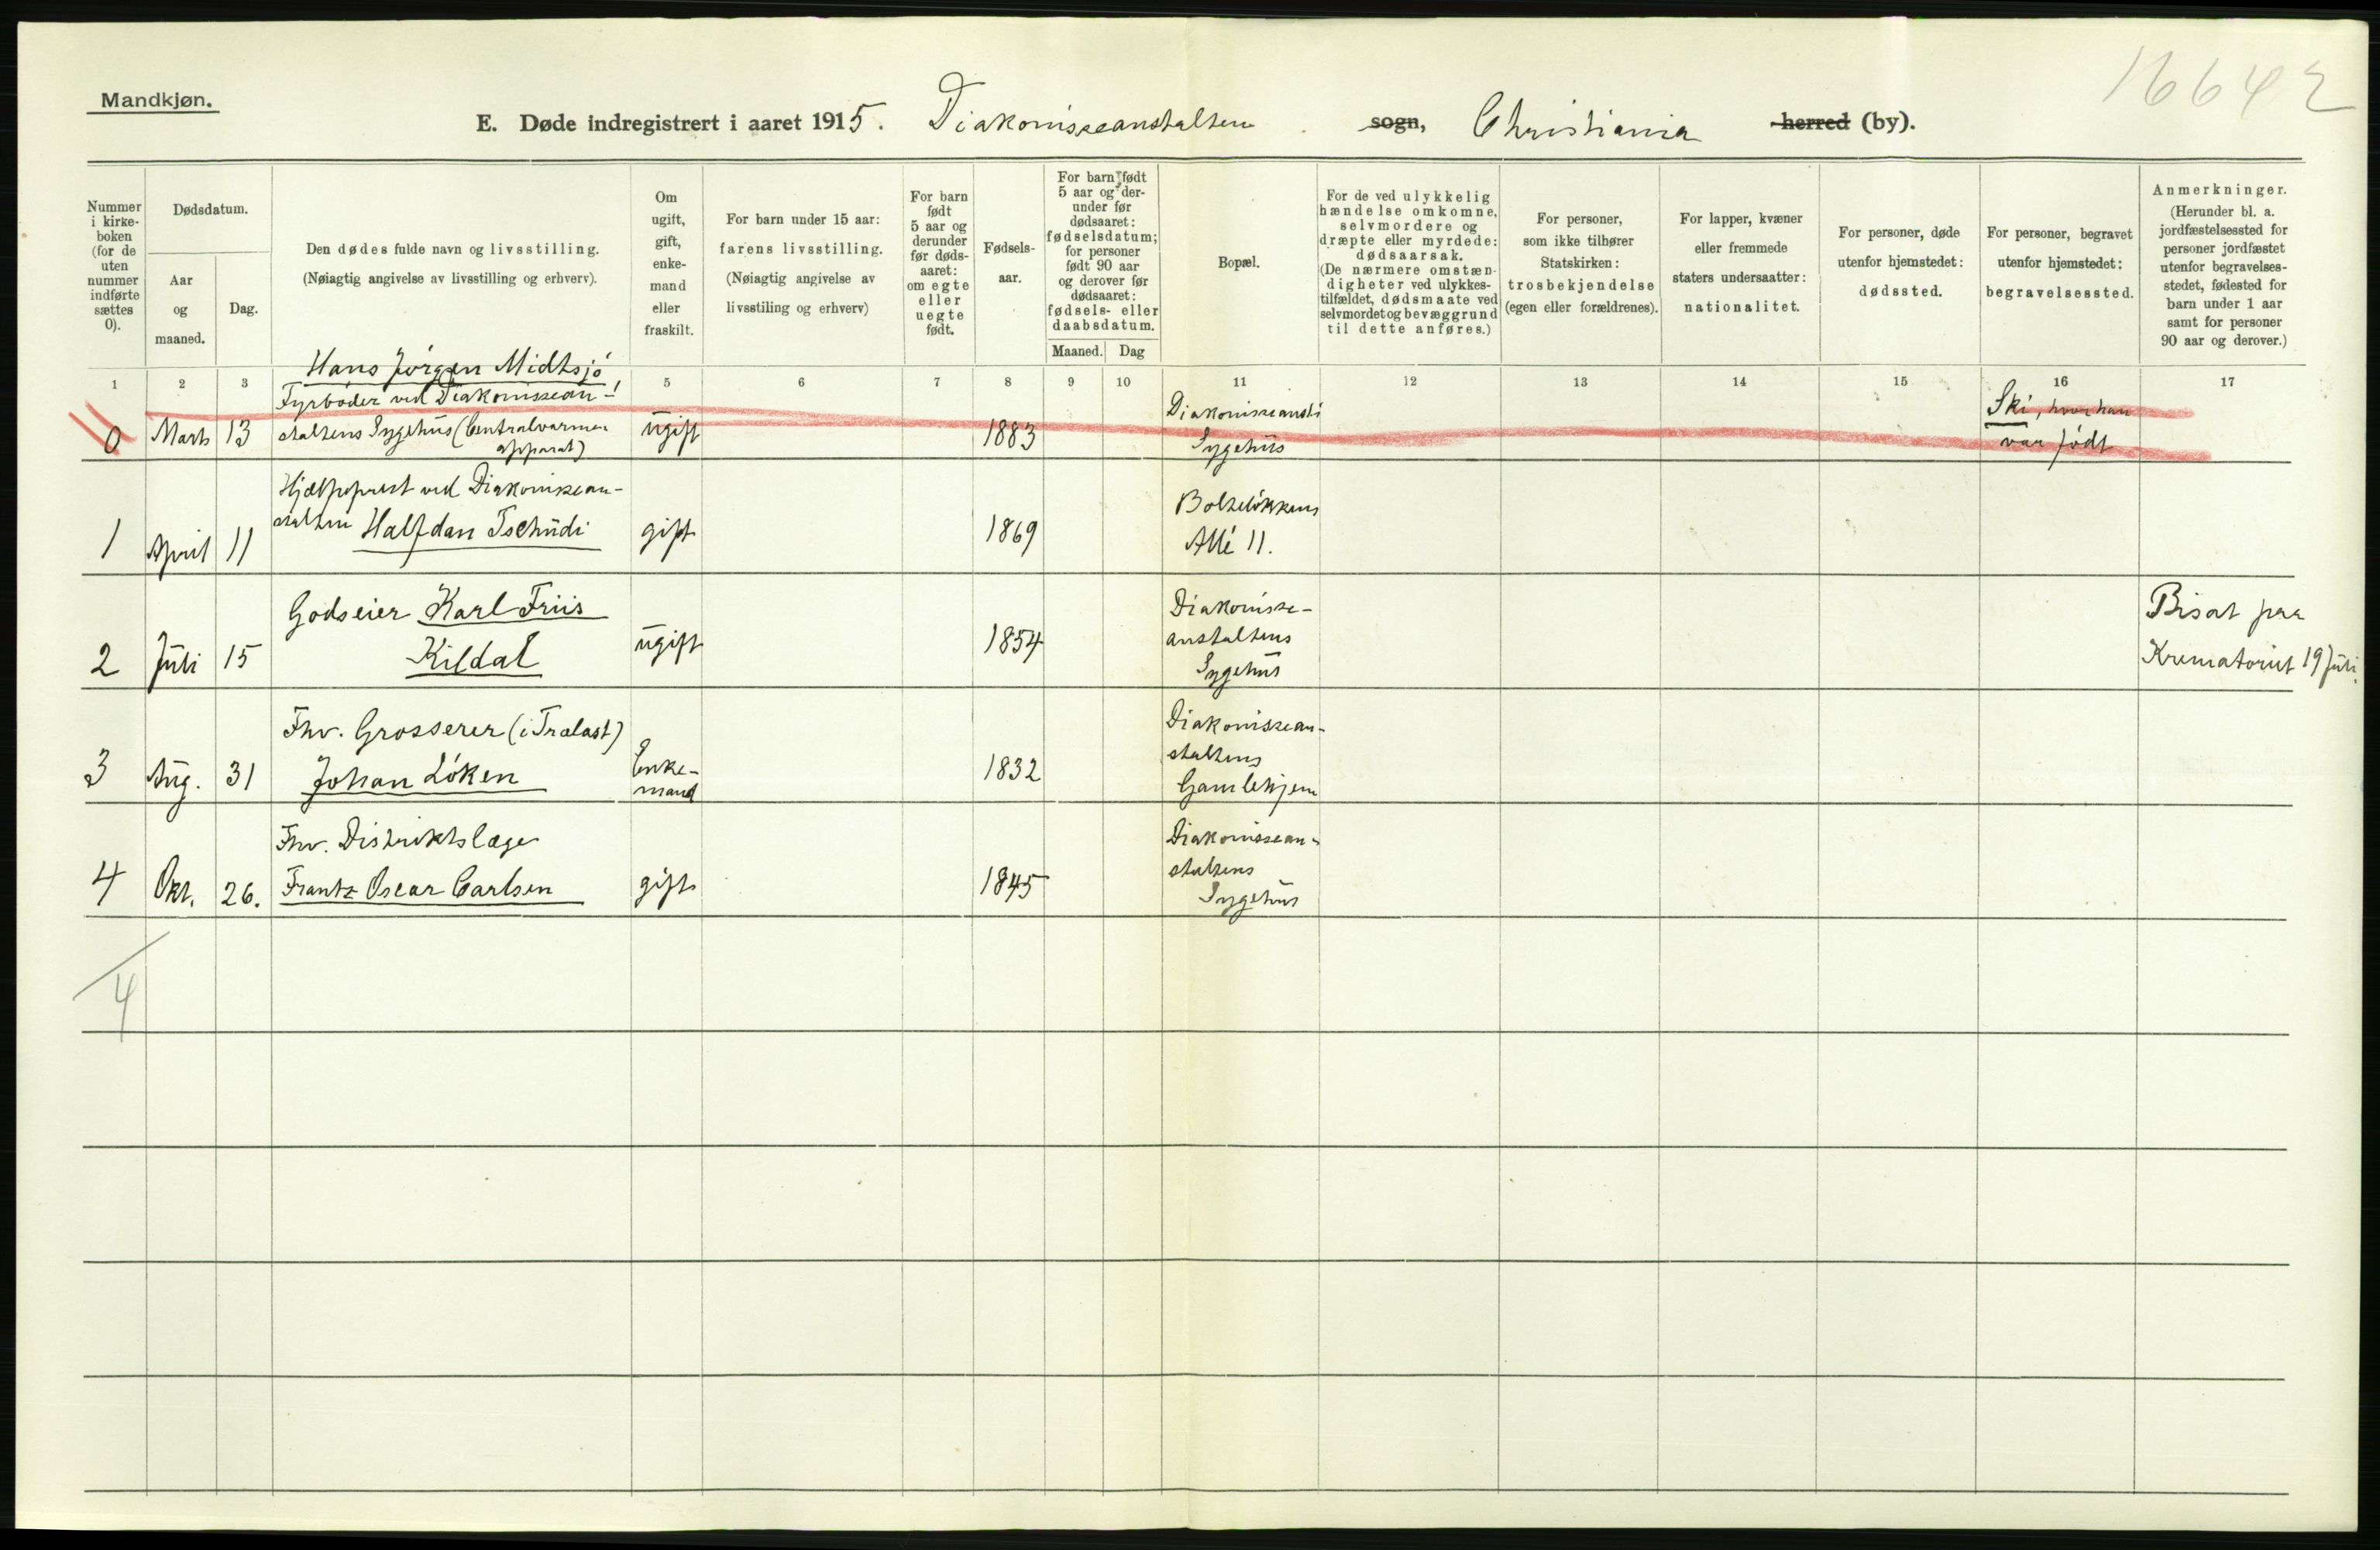 16642
Mandkjøn.
E. Døde indregistrert i aaret 1915. Diakonisseanstalten sogn, Christiania herred (by).
Nummer i kirke-boken (for de uten nummer indførte sættes 0).
Dødsdatum.
Aar og maaned.
Dag.
Den dødes fulde navn og livsstilling.
(Nøiagtig angivelse av livsstilling og erhverv).
Om ugift, gift, enke-mand eller fraskilt.
For barn under 15 aar:
farens livsstilling.
(Nøiagtig angivelse av
livsstiling og erhverv)
For barn født 5 aar og derunder før døds-aaret: om egte eller uegte født.
Fødsels-aar.
For barn født 5 aar og der-under før dødsaaret: fødselsdatum; for personer født 90 aar og derover før dødsaaret: fødsels- eller daabsdatum.
Maaned. Dag
Bopæl.
For de ved ulykkelig hændelse omkomne, selvmordere og dræpte eller myrdede: dødsaarsak.
(De nærmere omstæn-digheter ved ulykkes-tilfældet, dødsmaate ved selvmordet og bevæggrund til dette anføres.)
For personer, som ikke tilhører Statskirken: trosbekjendelse (egen eller forældrenes).
For lapper, kvæner eller fremmede staters undersaatter: nationalitet.
For personer, døde utenfor hjemstedet: dødssted.
For personer, begravet utenfor hjemstedet: begravelsessted.
Anmerkninger.
(Herunder bl. a. jordfæstelsessted for personer jordfæstet utenfor begravelses-stedet, fødested for barn under 1 aar samt for personer 90 aar og derover.)
1 2 3 5 6 7 8 9 10 11 12 13 14 15 16 17
Hans Jörgen Midtsjö
Fyrböder ved Diakonissean-
staltens Sygehus (Centralvarme-
apparat)
0 Marts 13 ugift 1883
Diakonisseanst.
Sygehus
Ski, hvor han
var født
Hjælpeprest ved Diakonissean-
stalten Halfdan Tschudi
1 April 11 gift 1869
Bolteløkkens
Allé 11.
Godseier Karl Friis
Kildal
2 Juli 15 ugift 1854
Diakonisse-
anstaltens
Sygehus
Bisat paa
Krematoriet 19 Juli.
Fhv. Grosserer (i Trælast)
Johan Löken
3 Aug. 31 Enke-
mand 1832
Diakonissean-
staltens
Gamlehjem
Fhv. Distriktslæge
Frantz Oscar Carlsen
4 Okt. 26. gift 1845
Diakonissean-
staltens
Sygehus
4